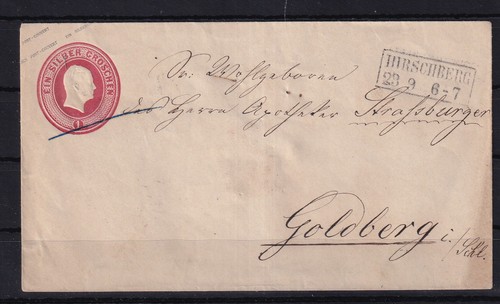 EIN SILBER GROSCHEN
1
HIRSCHBERG
23 9 6-7
Sr. Wohlgeboren
des Herrn Apotheker Strassburger
Goldberg i./Schl.